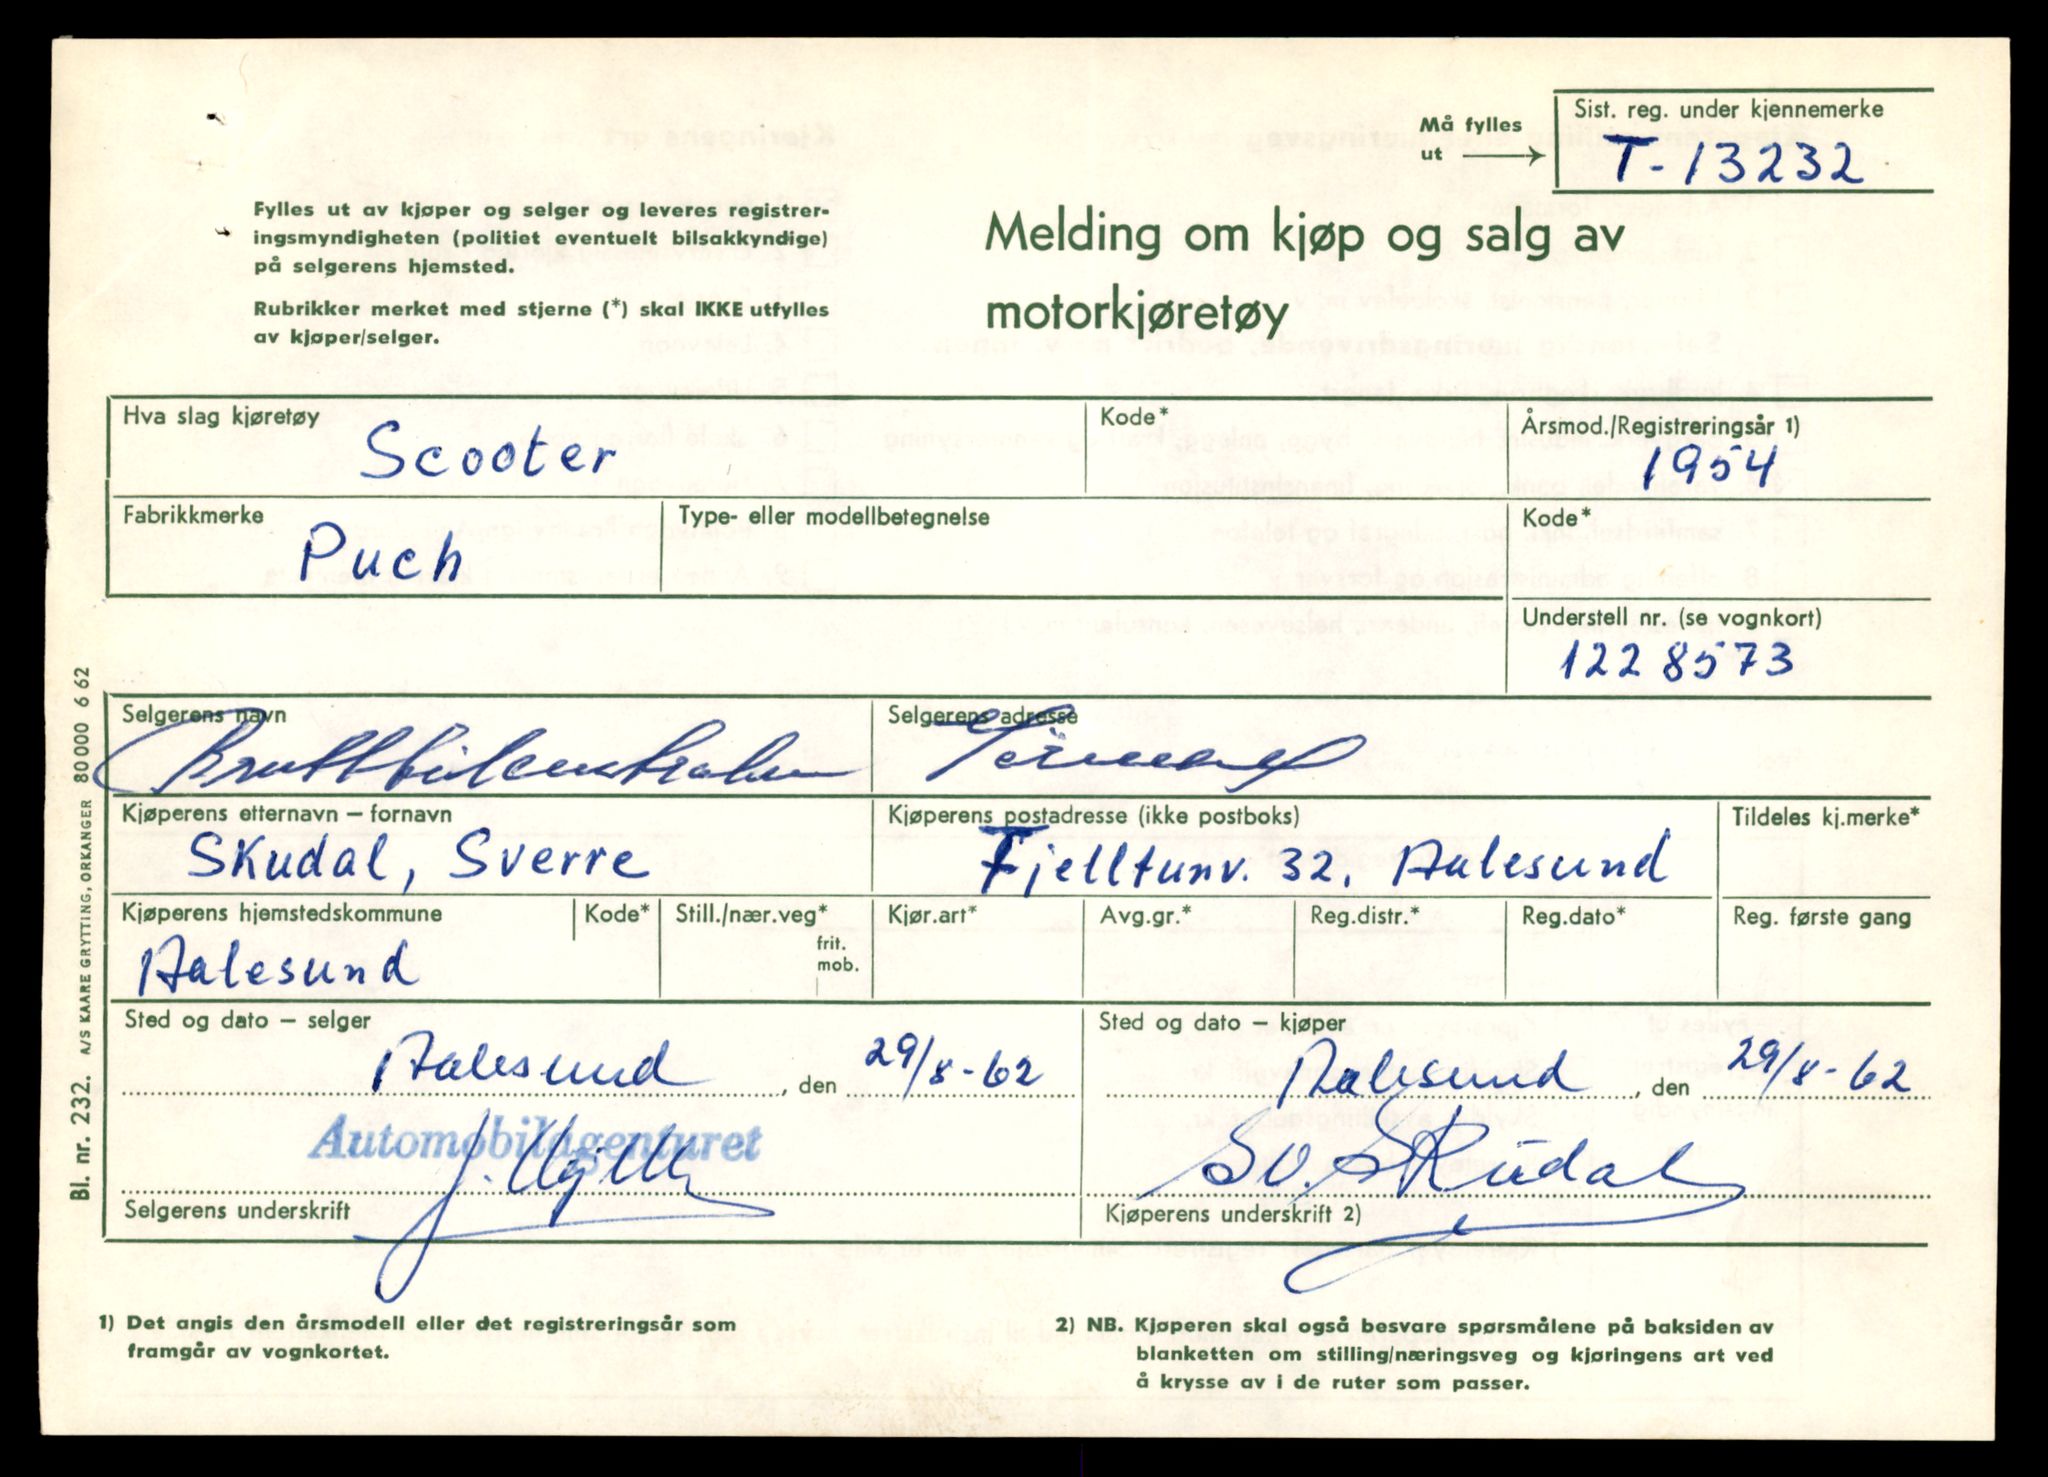 Må fylles
ut
Sist. reg. under kjennemerke
T-13232
Fylles ut av kjøper og selger og leveres registrer-
ingsmyndigheten (politiet eventuelt bilsakkyndige)
på selgerens hjemsted.
Rubrikker merket med stjerne (*) skal IKKE utfylles
av kjøper/selger.
Melding om kjøp og salg av
motorkjøretøy
Hva slag kjøretøy
Scooter
Kode*
Årsmod./Registreringsår 1)
1954
Fabrikkmerke
Puch
Type- eller modellbetegnelse
Kode*
Understell nr. (se vognkort)
1228573
Selgerens navn
Bruktbilsentralen
Selgerens adresse
Kjøperens etternavn – fornavn
Skudal, Sverre
Kjøperens postadresse (ikke postboks)
Fjelltunv. 32, Aalesund
Tildeles kj.merke*
Kjøperens hjemstedskommune
Aalesund
Kode*
Still./nær.veg*
frit.
mob.
Kjør.art*
Avg.gr.*
Reg.distr.*
Reg.dato*
Reg. første gang
Sted og dato – selger
Aalesund, den 29/8-62
Automobilagenturet
Selgerens underskrift
Sted og dato – kjøper
Aalesund, den 29/8-62
Sv. Skudal
Kjøperens underskrift 2)
1) Det angis den årsmodell eller det registreringsår som
framgår av vognkortet.
2) NB. Kjøperen skal også besvare spørsmålene på baksiden av
blanketten om stilling/næringsveg og kjøringens art ved
å krysse av i de ruter som passer.
Bl. nr. 232. A/S KAARE GRYTTING, ORKANGER 80000 6 62